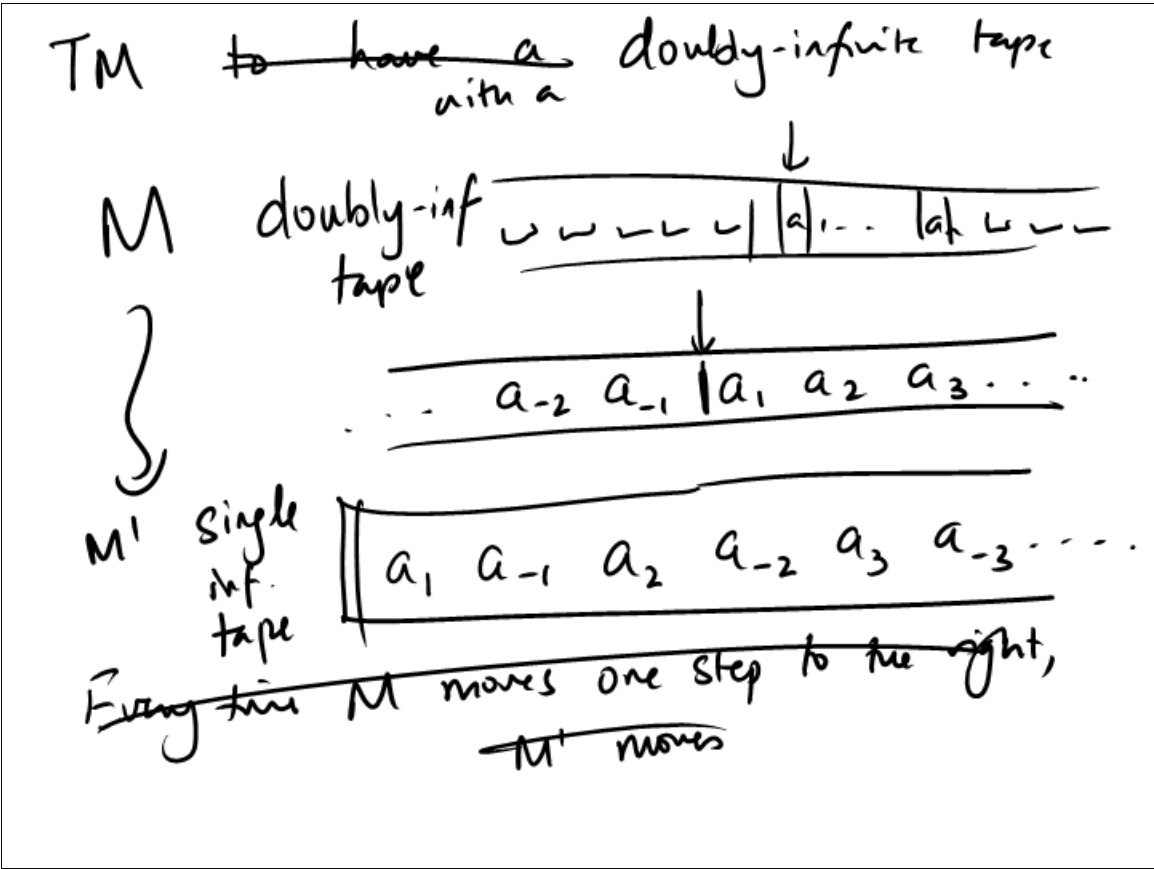 TM to have a doubly-infinite tape
with a
M doubly-inf tape ⌴ ⌴ ⌴ ⌴ ⌴ | |a|... |a| ⌴ ⌴ ⌴
... a₋₂ a₋₁ | a₁ a₂ a₃ .. ..
M' single inf. tape a₁ a₋₁ a₂ a₋₂ a₃ a₋₃ .....
Every time M moves one step to the right,
M' moves